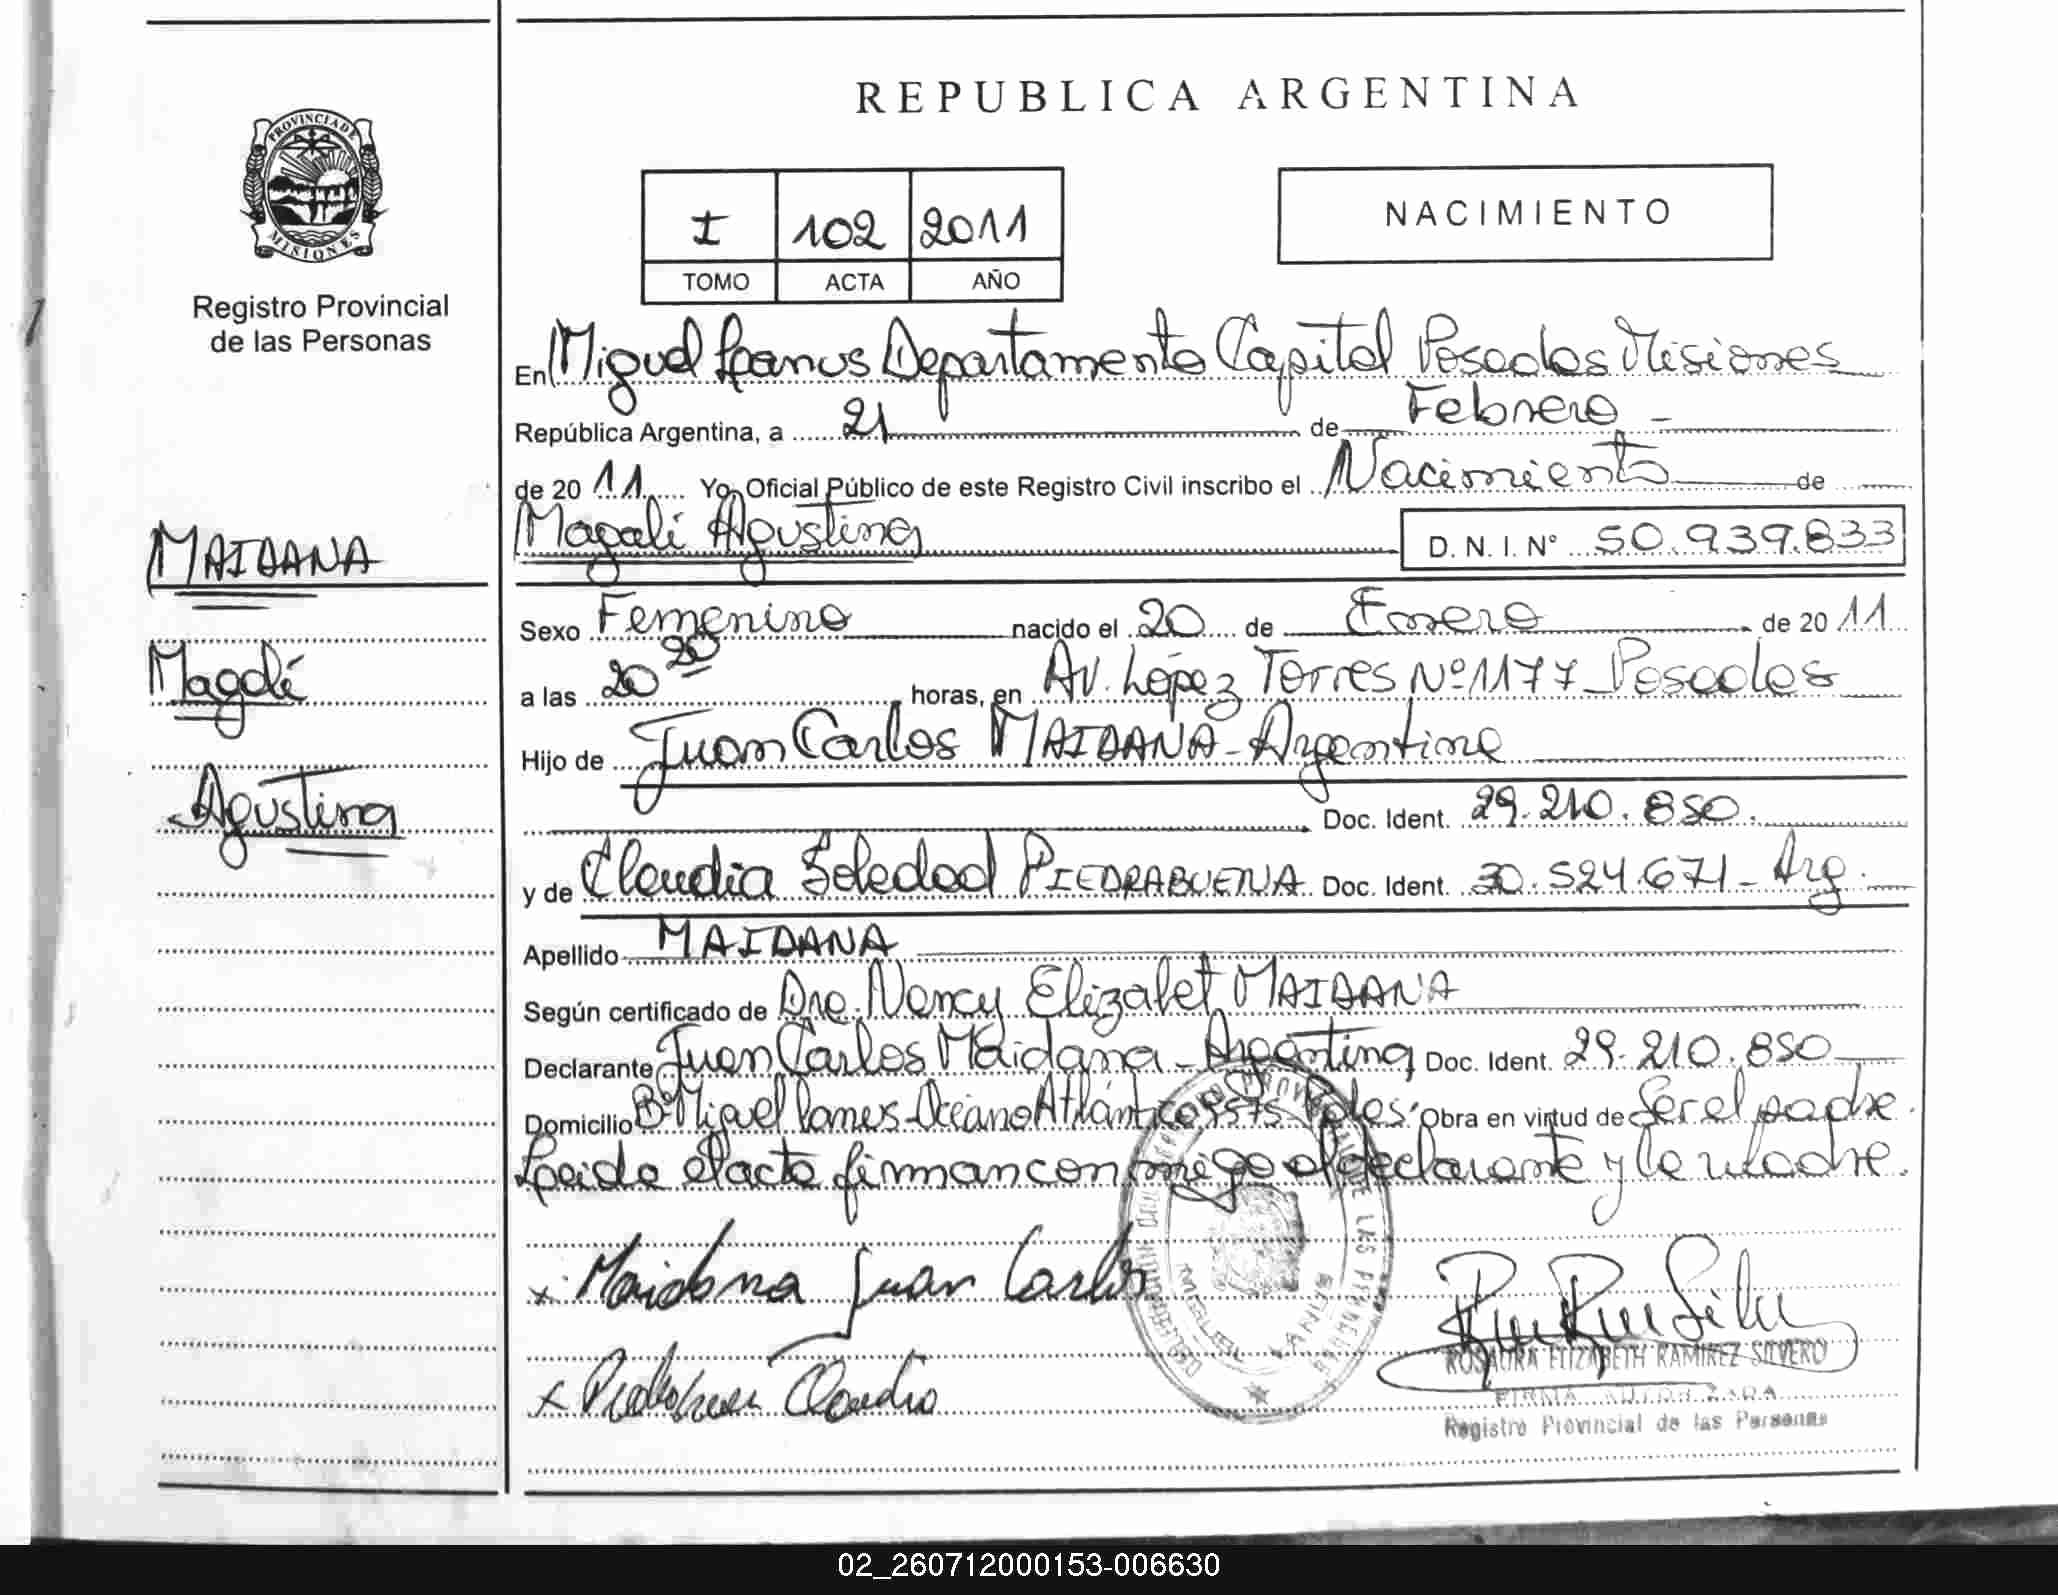 REPUBLICA ARGENTINA
PROVINCIA DE
MISIONES
Registro Provincial
de las Personas
I 102 2011
TOMO ACTA AÑO
NACIMIENTO
En Miguel Lanus Departamento Capital Posadas Misiones
República Argentina, a 21 de Febrero
de 2011 Yo, Oficial Público de este Registro Civil inscribo el Nacimiento de
Magali Agustina D. N. I. Nº 50.939.833
MAIDANA
Magalí
Agustina
Sexo Femenino nacido el 20 de Enero de 2011
a las 20 20 horas, en Av. López Torres Nº 1177 Posadas
Hijo de Juan Carlos MAIDANA - Argentino
Doc. Ident. 29.210.850.
y de Claudia Soledad PIEDRABUENA Doc. Ident. 30.524.671 - Arg.
Apellido MAIDANA
Según certificado de Dra. Nancy Elizabet MAIDANA
Declarante Juan Carlos Maidana - Argentino Doc. Ident. 29.210.850
Domicilio Bº Miguel Lanus - Océano Atlántico Obra en virtud de Ser el padre.
Leida el acta firman conmigo el declarante y la madre.
x Maidana Juan Carlos
x Piedrabuena Claudia
MIGUEL LANUS
ROSAURA ELIZABETH RAMIREZ SILVERO
FIRMA AUTORIZADA
Registro Provincial de las Personas
02_260712000153-006630